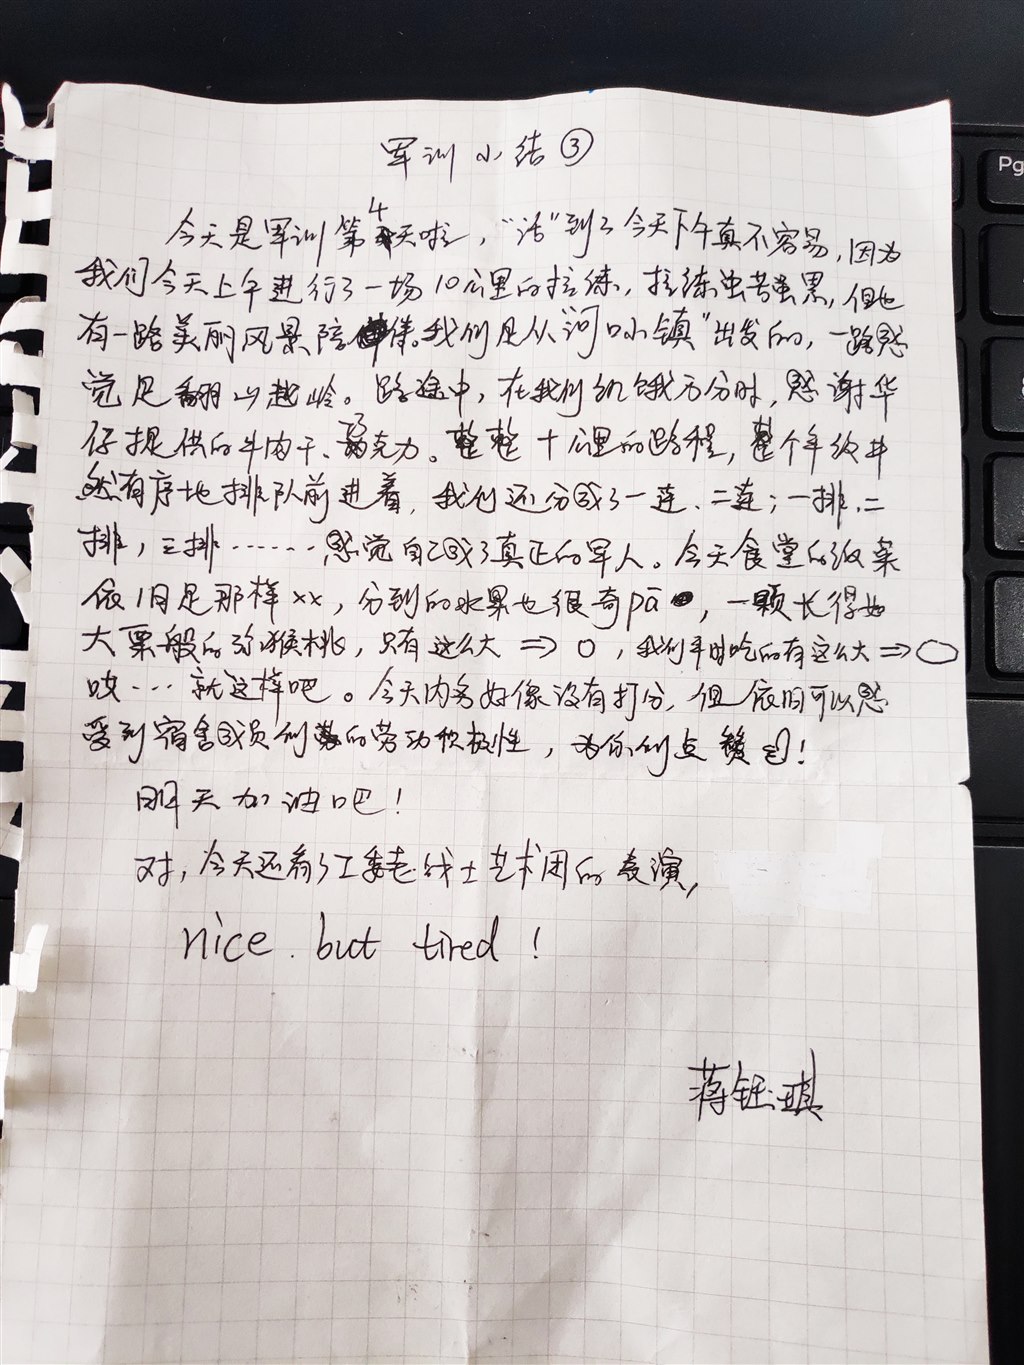 军训小结③
今天是军训第4天啦，“活”到了今天下午真不容易，因为
我们今天上午进行了一场10公里的拉练，拉练虽苦虽累，但也
有一路美丽风景陪伴。我们是从“河口小镇”出发的，一路感
觉是翻山越岭。路途中，在我们饥饿万分时，感谢华
仔提供的牛肉干、巧克力。整整十公里的路程，整个年级井
然有序地排队前进着，我们还分成了一连、二连；一排、二
排，三排……感觉自己成了真正的军人。今天食堂的饭菜
依旧是那样xx，分到的水果也很奇pā，一颗长得如
大栗般的猕猴桃，只有这么大⇒○，我们平时吃的有这么大⇒○
哎…就这样吧。今天内务好像没有打分，但依旧可以感
受到宿舍成员们的劳动积极性，为你们点赞！
明天加油吧！
对，今天还看了工委老战士艺术团的表演，
nice. but tired!
蒋钰琪
Pg